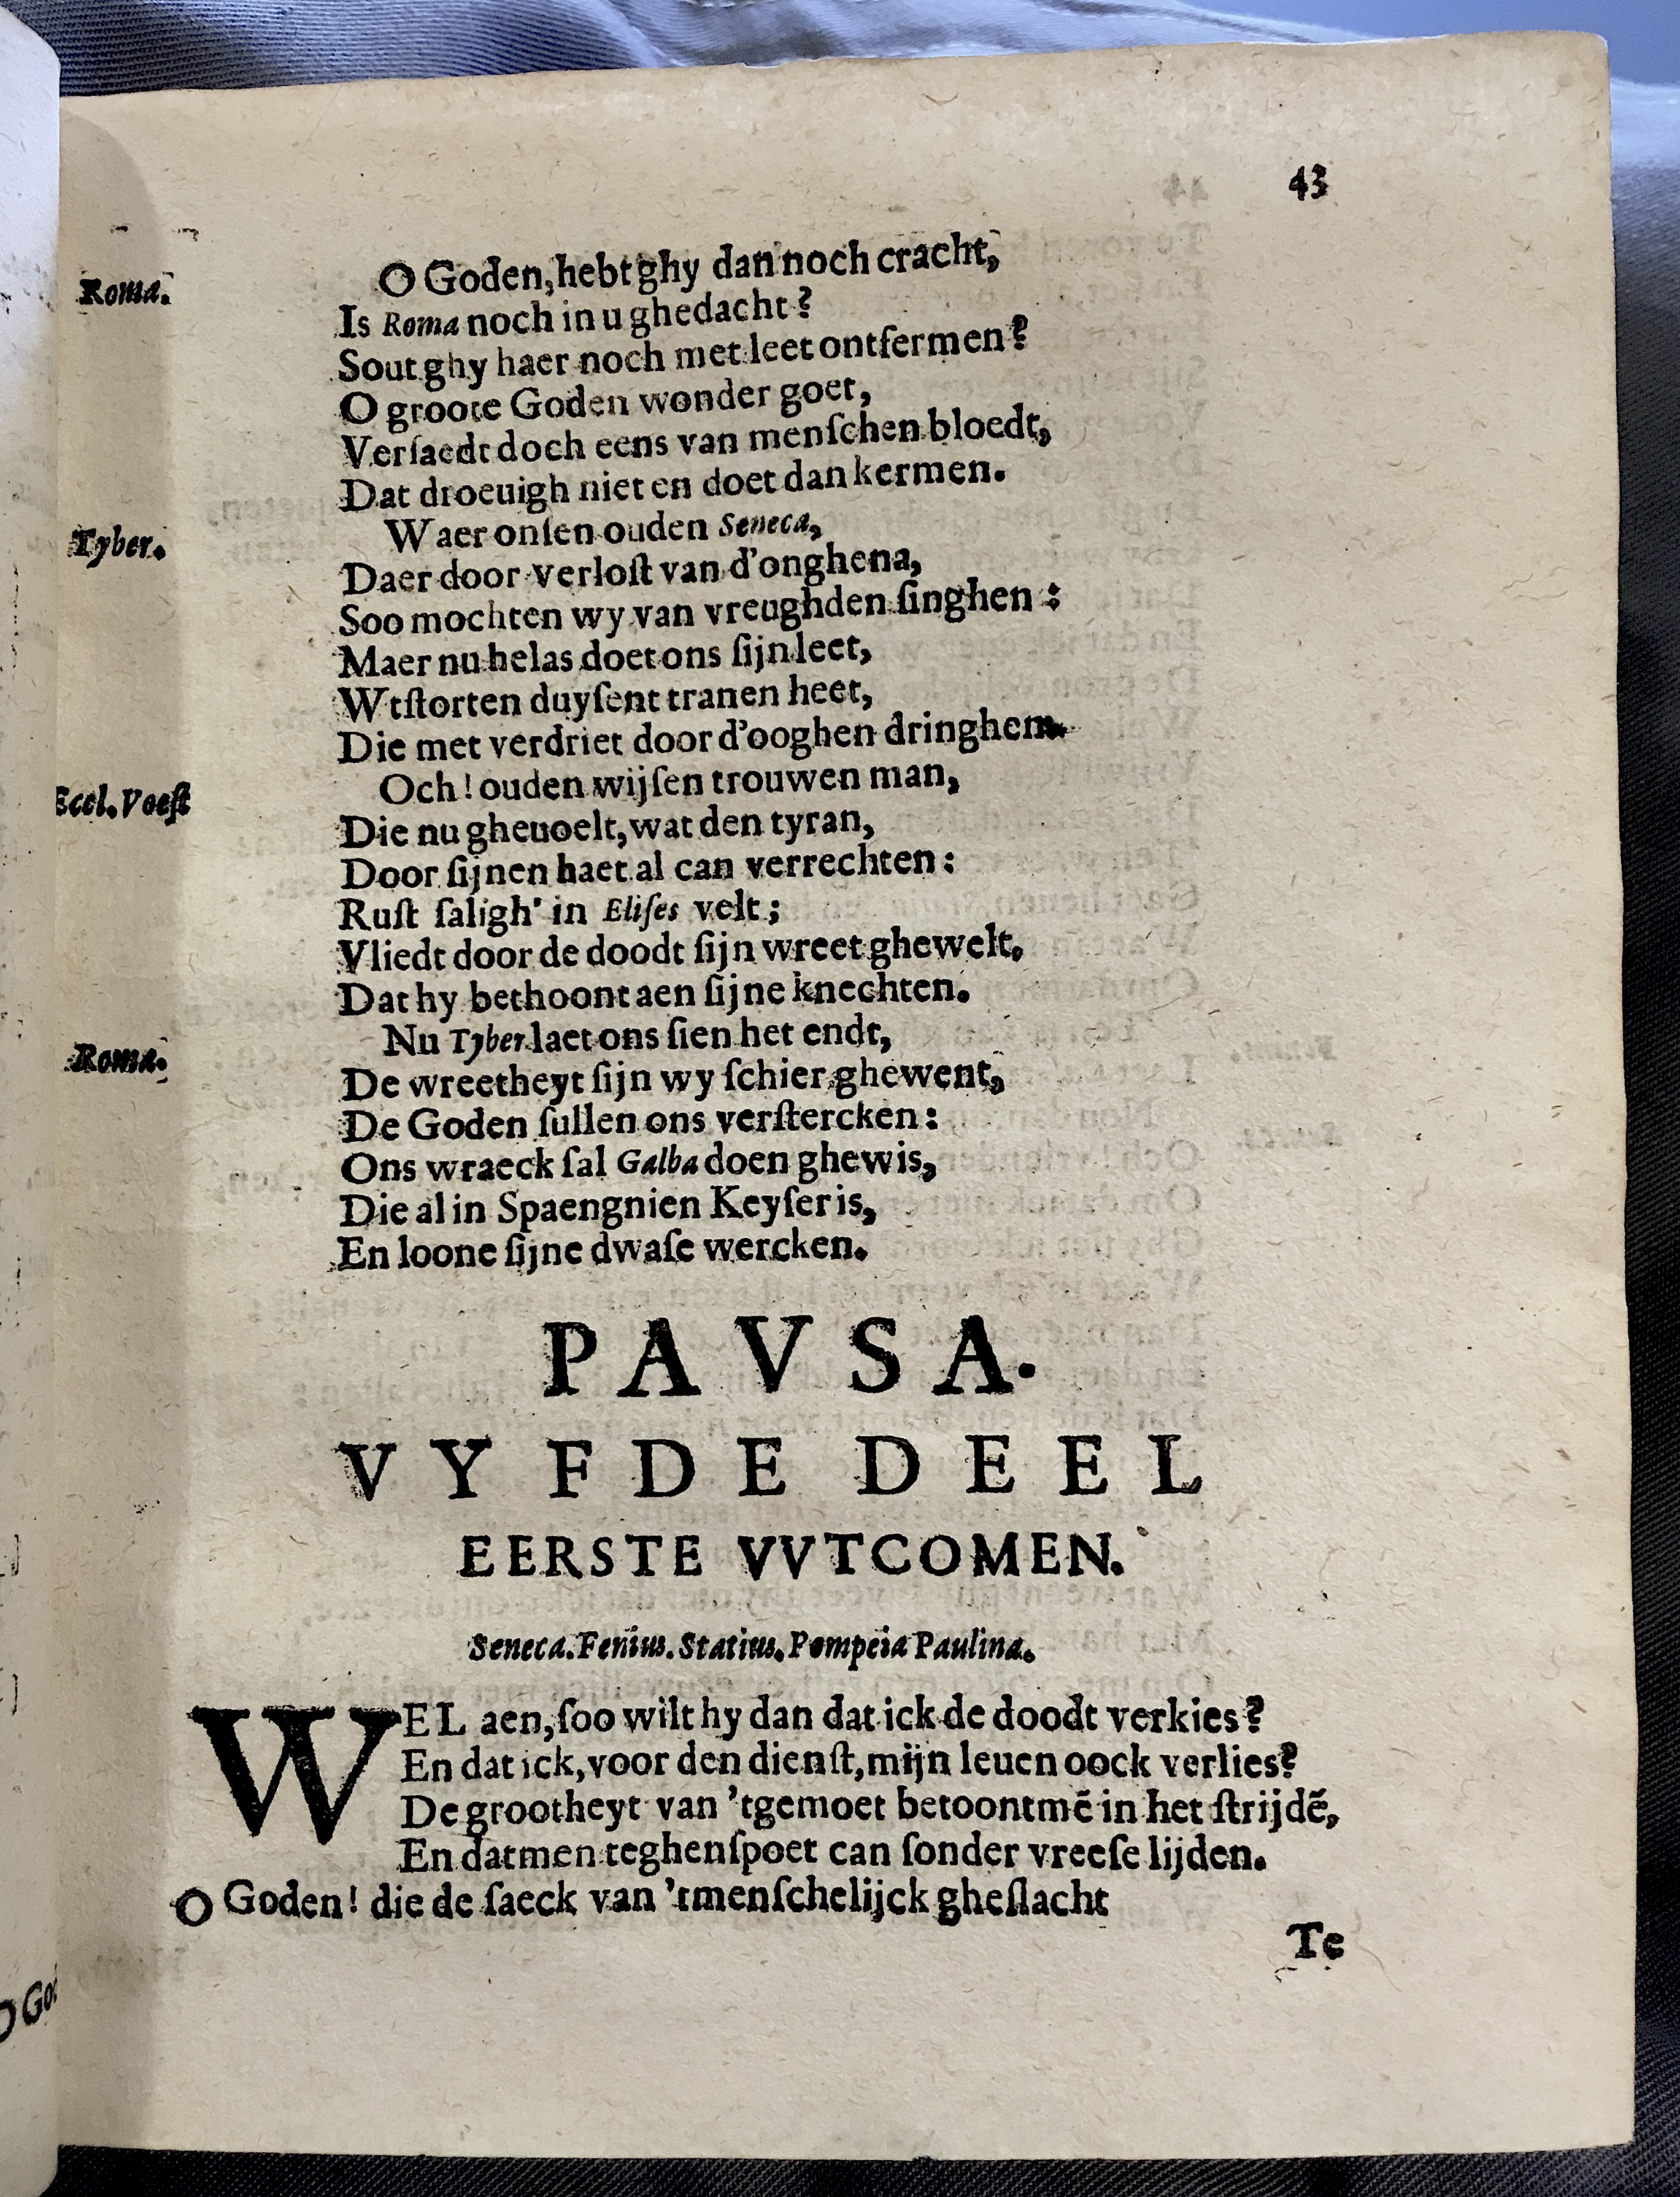 43
Roma. O Goden, hebt ghy dan noch cracht,
Is Roma noch in u ghedacht?
Sout ghy haer noch met leet ontfermen?
O groote Goden wonder goet,
Versaedt doch eens van menſchen bloedt,
Dat droeuigh niet en doet dan kermen.
Tyber. Waer onſen ouden Seneca,
Daer door verloſt van d'onghena,
Soo mochten wy van vreughden ſinghen:
Maer nu helas doet ons ſijn leet,
Wtſtorten duyſent tranen heet,
Die met verdriet door d'ooghen dringhen.
Eccl. Voeſt Och! ouden wijſen trouwen man,
Die nu gheuoelt, wat den tyran,
Door ſijnen haet al can verrechten:
Ruſt ſaligh' in Eliſes velt;
Vliedt door de doodt ſijn wreet ghewelt,
Dat hy bethoont aen ſijne knechten.
Roma. Nu Tyber laet ons ſien het endt,
De wreetheyt ſijn wy ſchier ghewent,
De Goden ſullen ons verſtercken:
Ons wraeck ſal Galba doen ghewis,
Die al in Spaengnien Keyſer is,
En loone ſijne dwaſe wercken.
PAVSA.
VYFDE DEEL
EERSTE VVTCOMEN.
Seneca. Fenius. Statius. Pompeia Paulina.
WEL aen, ſoo wilt hy dan dat ick de doodt verkies?
En dat ick, voor den dienſt, mijn leuen oock verlies?
De grootheyt van 'tgemoet betoontmẽ in het ſtrijdẽ,
En datmen teghenſpoet can ſonder vreeſe lijden.
O Goden! die de ſaeck van 'tmenſchelijck gheſlacht
Te